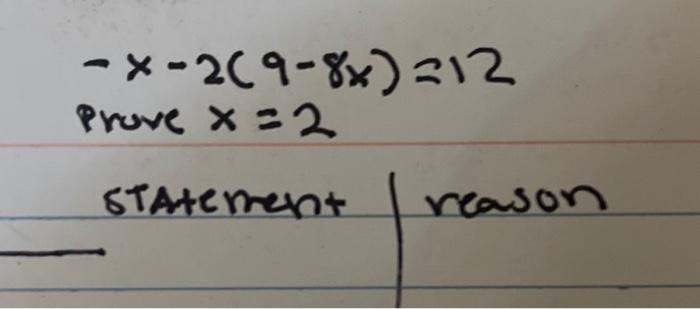 - x - 2(9-8x) = 12
Prove x = 2
STAtement | reason